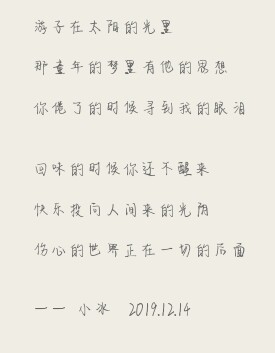 游子在太阳的光里
那童年的梦里有他的思想
你倦了的时候寻到我的眼泪
回味的时候你还不醒来
快乐投向人间来的光阴
伤心的世界正在一切的后面
—— 小冰 2019.12.14